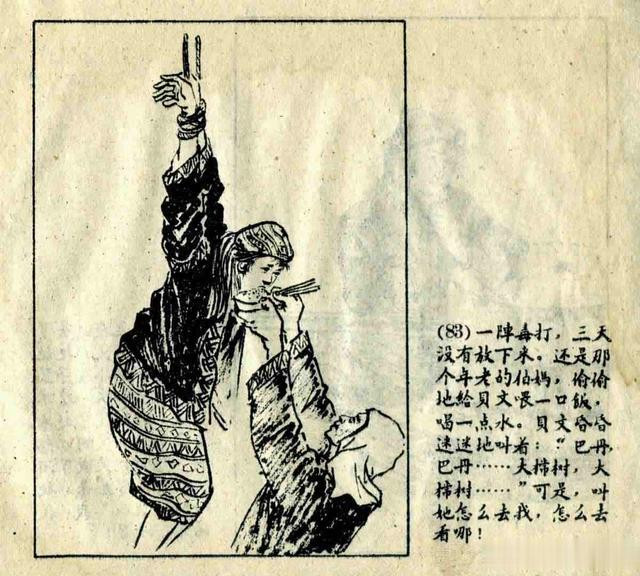 (83) 一陣毒打，三天
没有放下来。还是那
个年老的伯媽，偷偷
地給貝文喂一口飯，
喝一点水。貝文昏昏
迷迷地叫着：“巴丹，
巴丹……大柿树，大
柿树……”可是，叫
她怎么去找，怎么去
看哪！